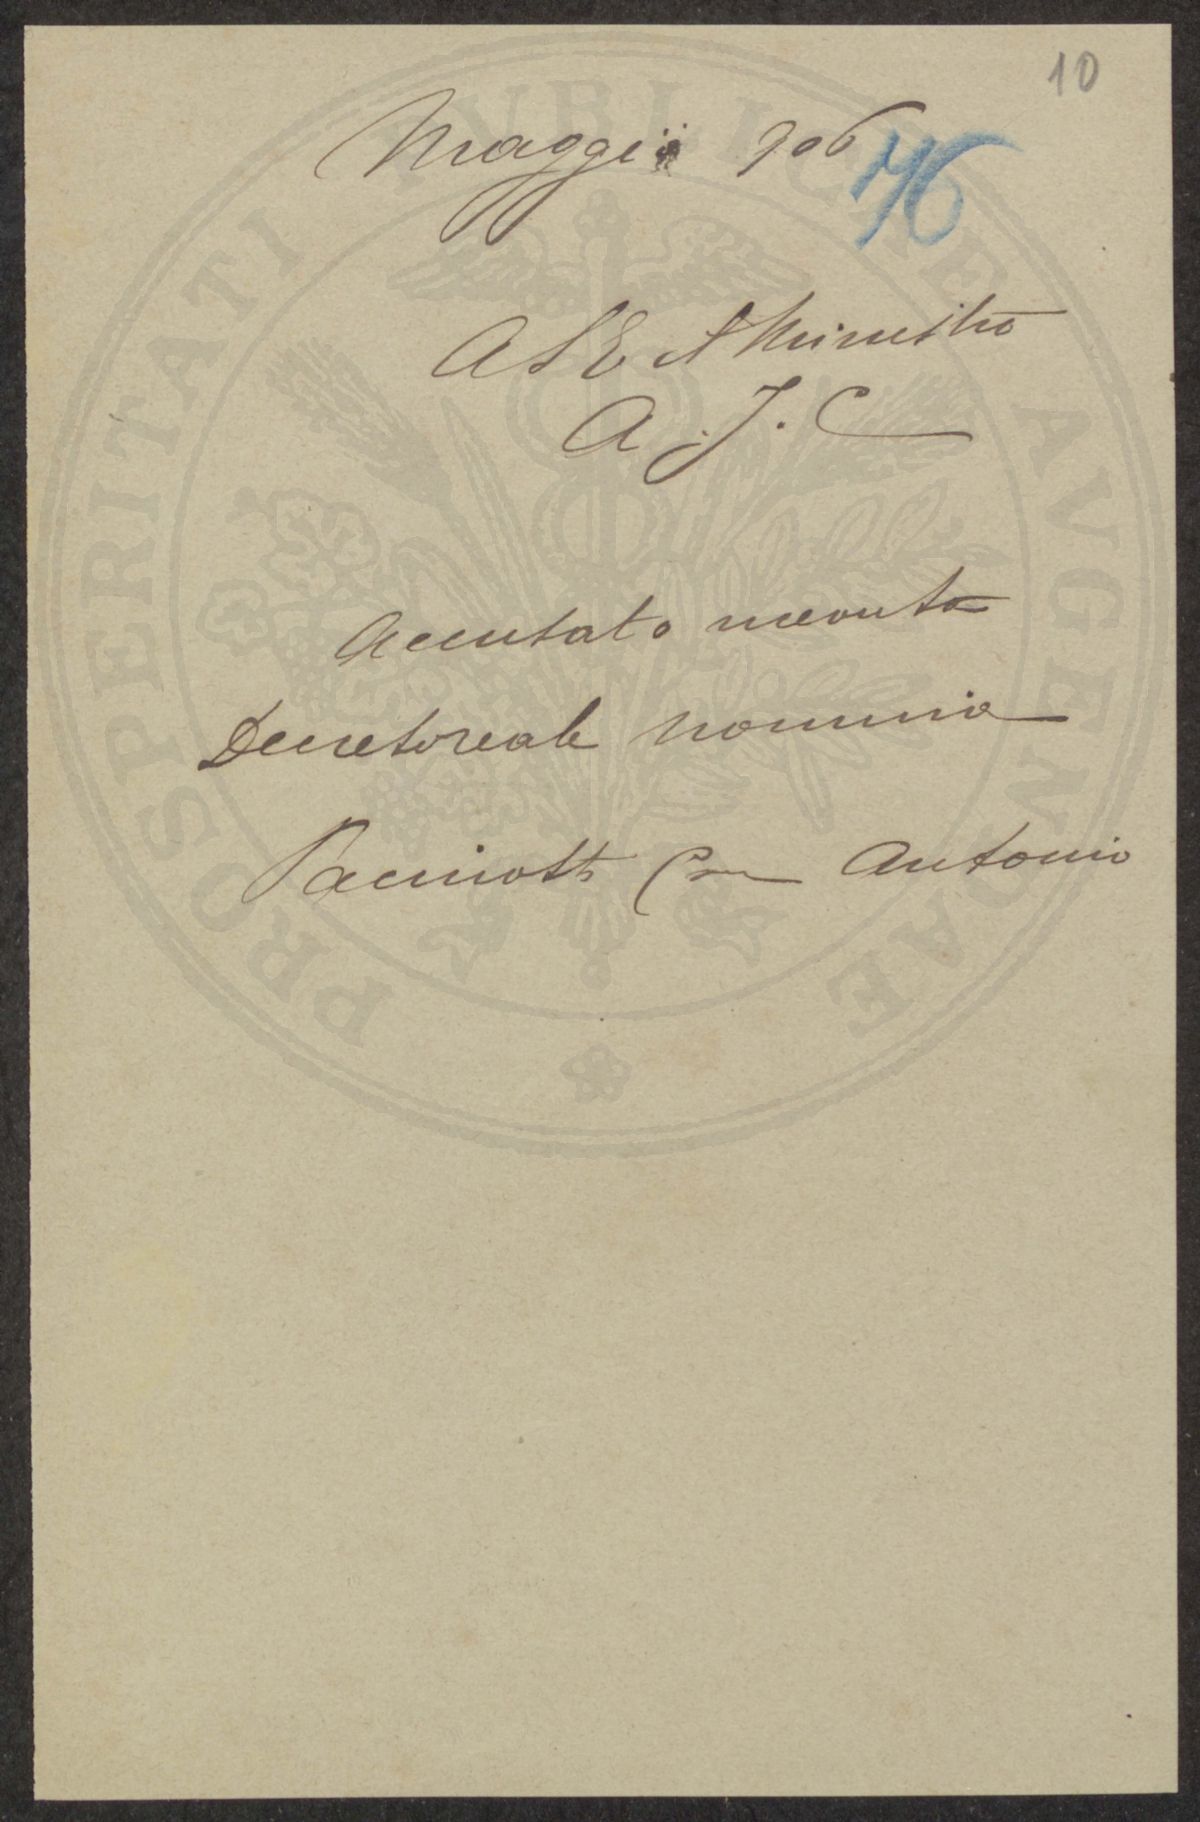 10
Maggio 906
76
A S E il Ministro
A. I. C
Accusato ricevuta
Decreto reale nomina
Pacinotti Com Antonio
PROSPERITATI PVBLICAE AVGENDAE